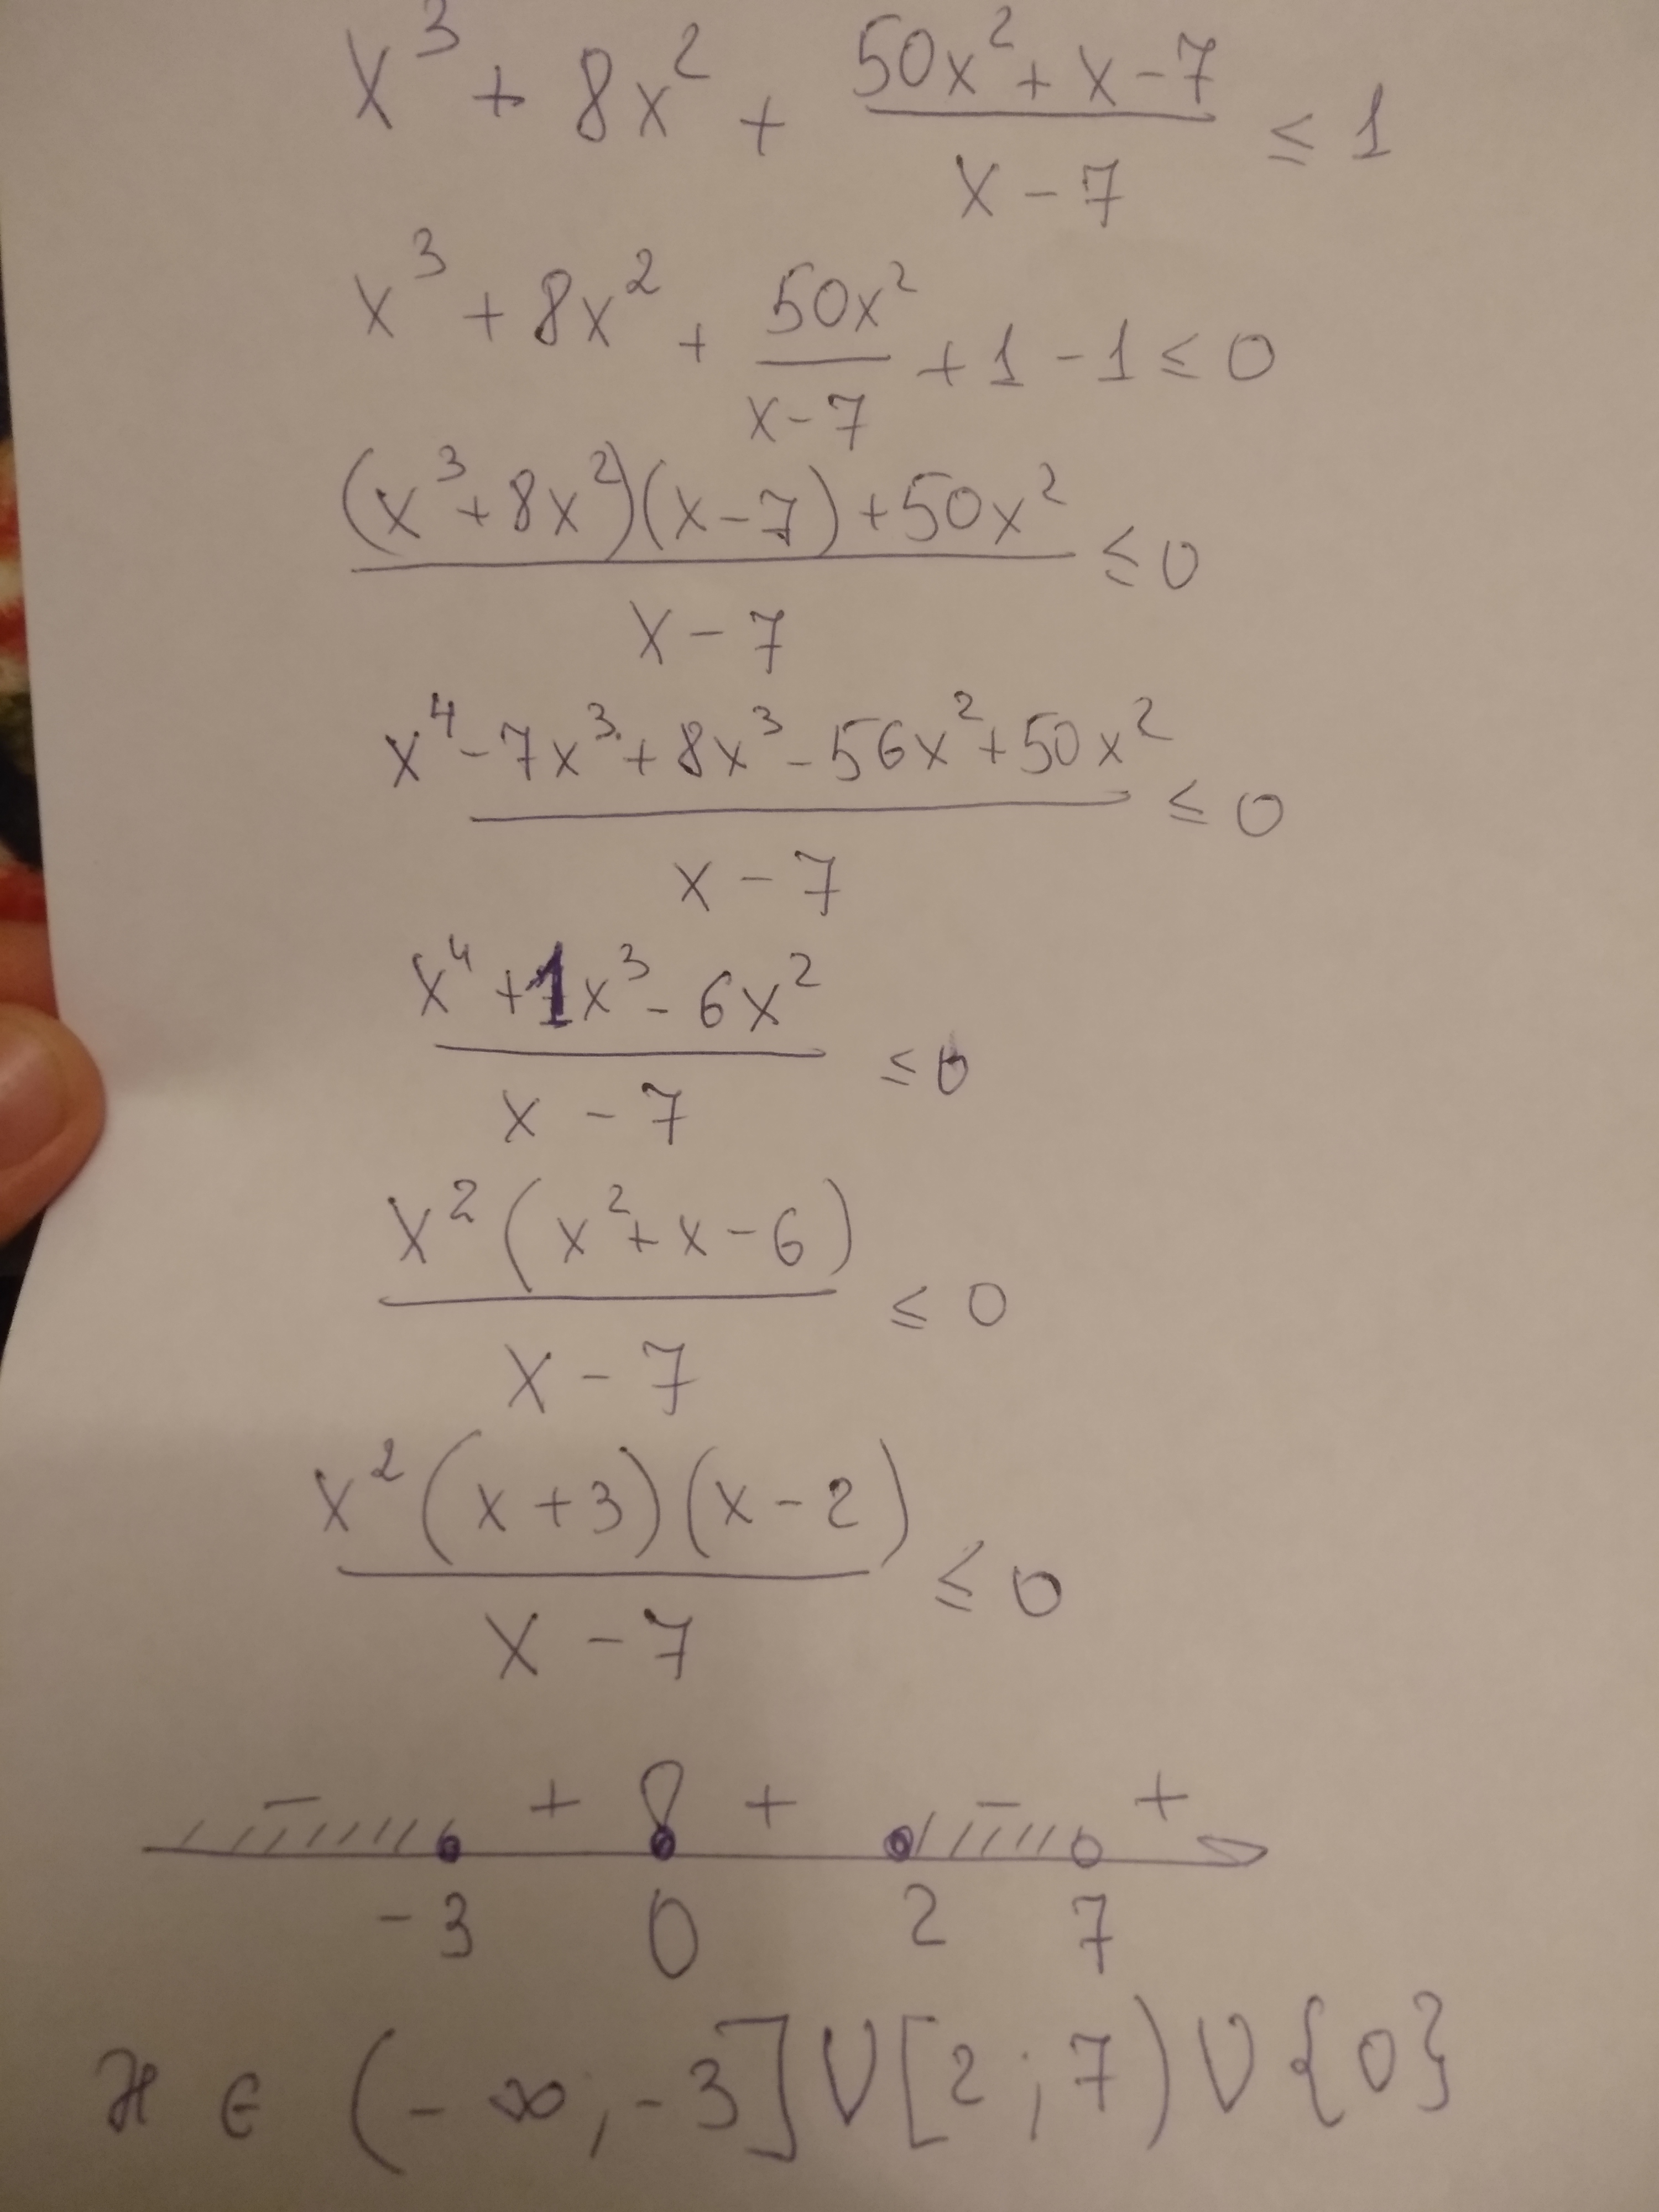 x³ + 8x² + (50x² + x - 7)/(x - 7) ≤ 1
x³ + 8x² + 50x²/(x - 7) + 1 - 1 ≤ 0
((x³ + 8x²)(x - 7) + 50x²)/(x - 7) ≤ 0
(x⁴ - 7x³ + 8x³ - 56x² + 50x²)/(x - 7) ≤ 0
(x⁴ + 1x³ - 6x²)/(x - 7) ≤ 0
x²(x² + x - 6)/(x - 7) ≤ 0
x²(x + 3)(x - 2)/(x - 7) ≤ 0
- + + - +
-3 0 2 7
x ∈ (-∞; -3] ∪ [2; 7) ∪ {0}